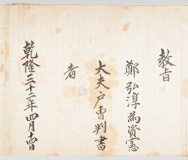 教旨
鄭弘淳為資憲
大夫戶曹判書
者
乾隆三十二年四月